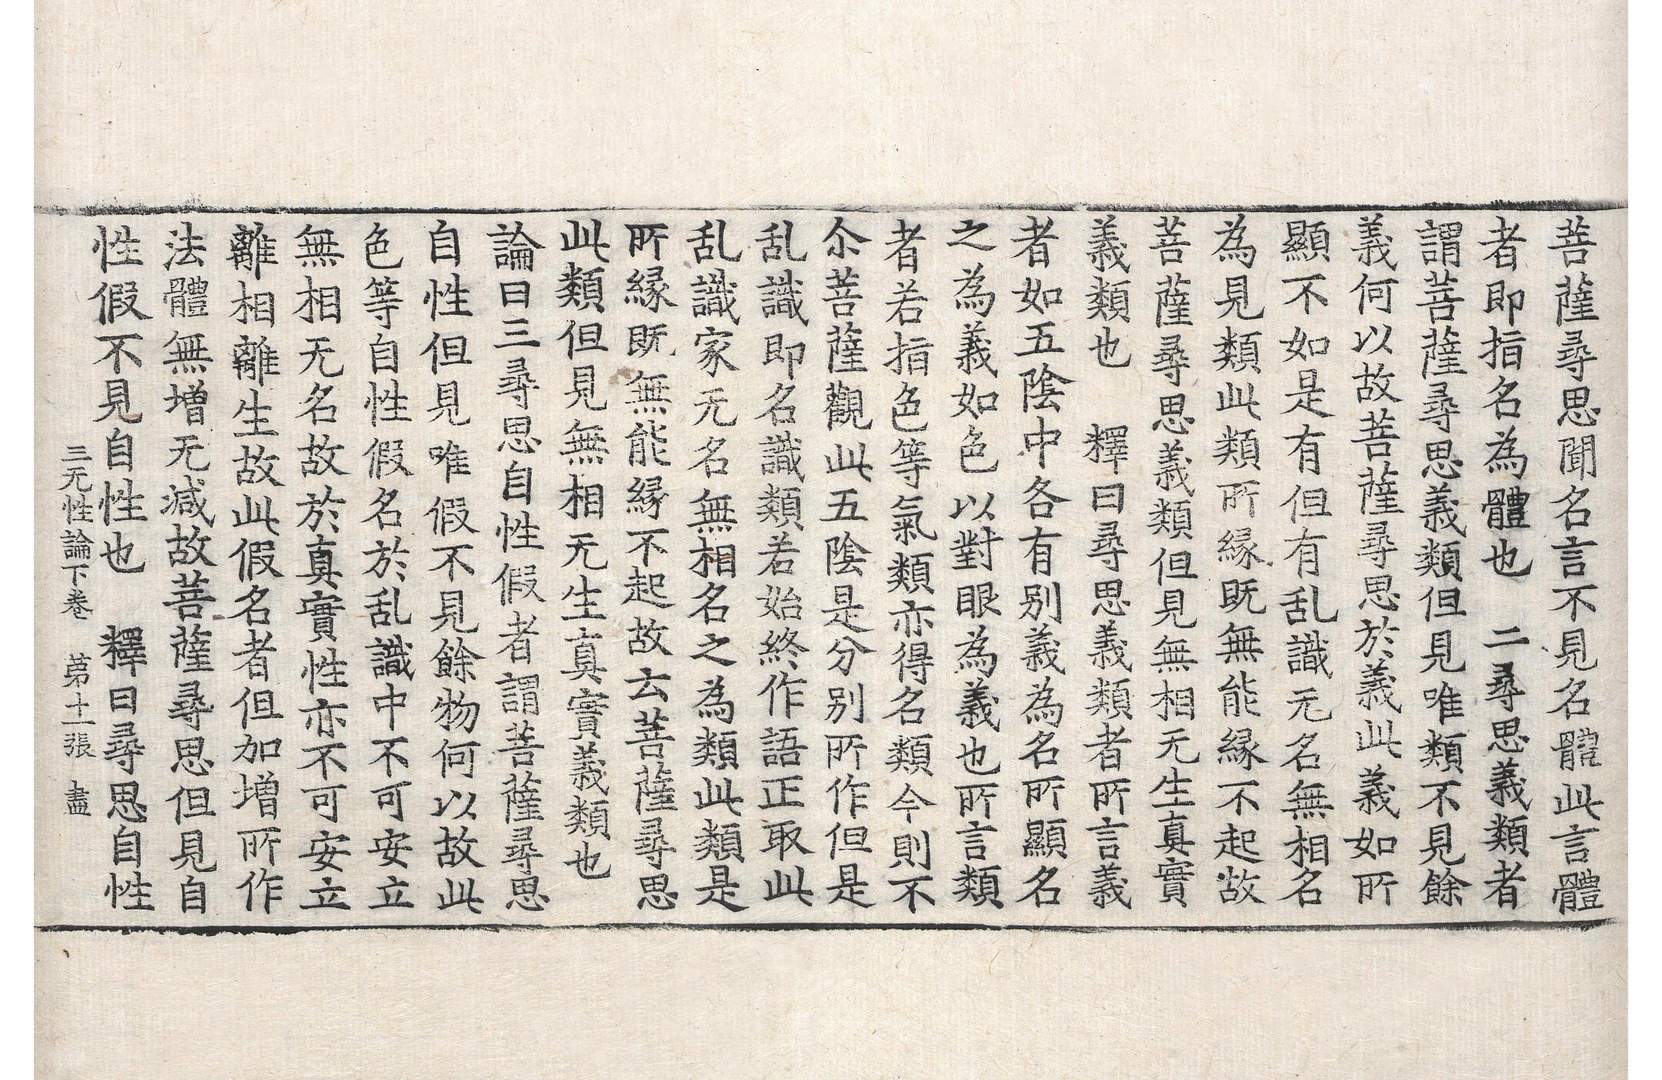 菩薩尋思聞名言不見名體此言體
者即指名為體也　二尋思義類者
謂菩薩尋思義類但見唯類不見餘
義何以故菩薩尋思於義此義如所
顯不如是有但有乱識无名無相名
為見類此類所縁既無能縁不起故
菩薩尋思義類但見無相无生真實
義類也　釋曰尋思義類者所言義
者如五陰中各有別義為名所顯名
之為義如色以對眼為義也所言類
者若指色等氣類亦得名類今則不
尒菩薩觀此五陰是分別所作但是
乱識即名識類若始終作語正取此
乱識家无名無相名之為類此類是
所縁既無能縁不起故云菩薩尋思
此類但見無相无生真實義類也
論曰三尋思自性假者謂菩薩尋思
自性但見唯假不見餘物何以故此
色等自性假名於乱識中不可安立
無相无名故於真實性亦不可安立
離相離生故此假名者但加增所作
法體無增无減故菩薩尋思但見自
性假不見自性也　釋曰尋思自性
三无性論下卷　苐十一張　盡